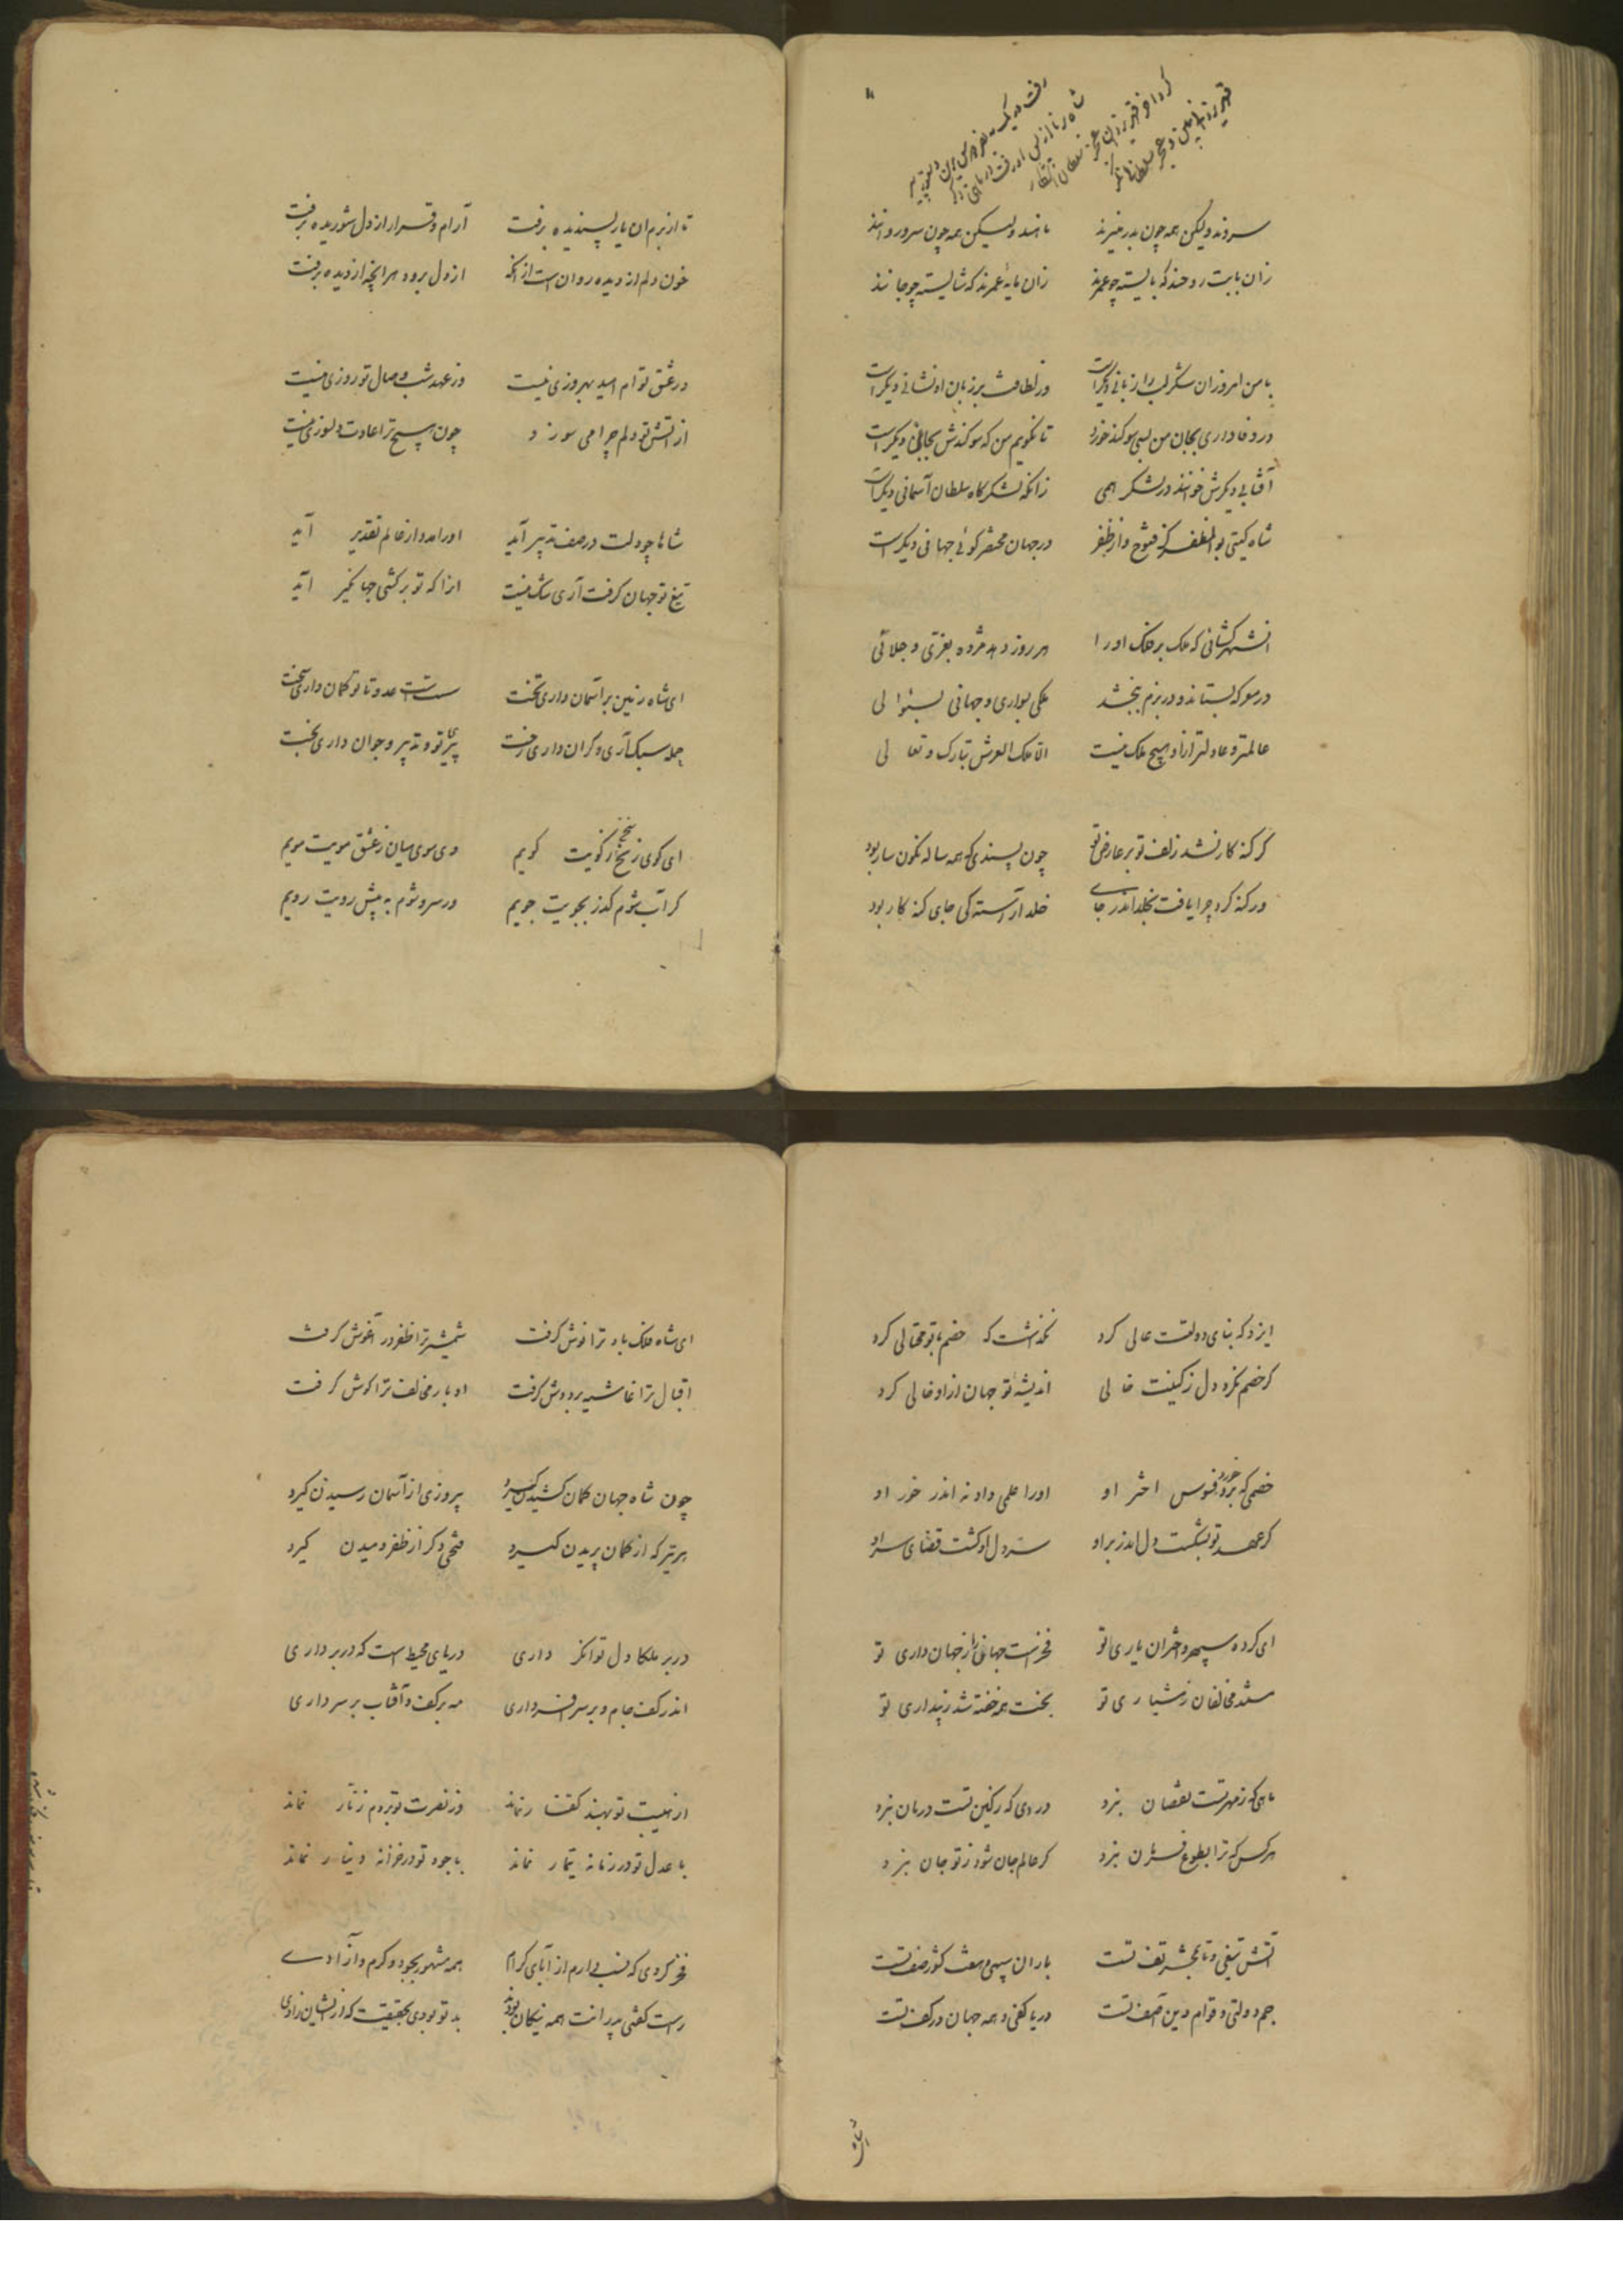 سروند ولیکن همه چون بدر منیرند    ماهند ولیکن همه چون سرو روانند
زان بابت روحند که بایسته چو عمرند    زان مایه عمرند که شایسته چو جانند
با من امروز ان شکر لب را زبانی دیگر است    ور لطافت بر زبان او نشانی دیگر است
در وفاداری بجان من بسی سوکند خورد    تا نکویم من که سوکندش بجانی دیگر است
آفتابی دیکرش خوانند در لشکر همی    زانکه لشکرکاه سلطان آسمانی دیگر است
شاه کیتی بوالمظفر کز فتوح و از ظفر    در جهان مختصر کوئی جهانی دیکر است
ان شهرکشائی که ملک بر فلک او را    هر روز دهد مژده بفری و جلالی
در معرکه بستاند و در بزم ببخشد    ملکی بسواری و جهانی بسئوالی
عالمتر و عادلتر ازو هیچ ملک نیست    الا ملک العرش تبارک و تعالی
کر کنه کار نشد زلف تو بر عارض تو    چون پسندی که همه ساله نکون سار بود
ور کنه کرد چرا یافت بخلد اندر جای    خلد آراسته کی جای کنه کار بود
تا از برم ان یار پسندیده برفت    آرام و قرار از دل شوریده برفت
خون دلم از دیده روان است از آنکه    از دل برود هر انچه از دیده برفت
در عشق تو ام امید بهروزی نیست    وز عهد شب وصال تو روزی نیست
از آتش تو دلم چرا می سوزد    چون هیچ ترا عادت دلسوزی نیست
شاها چو دلت در صف تدبیر آید    او را مدد از عالم تقدیر آید
تیغ تو جهان کرفت آری شک نیست    انرا که تو برکشی جهانکیر آید
ای شاه زمین بر آسمان داری تخت    سست است عدو تا تو کمان داری سخت
حمله سبک آری و کران داری رخت    پیری تو بتدبیر و جوان داری بخت
ای کوی زنخ ز کویت کویم    وی موی میان ز عشق مویت مویم
کر آب شوم کذر بجویت جویم    ور سرو شوم به پیش رویت رویم
ایزد که بنای دولتت عالی کرد    نکذاشت که خصم با تو محتالی کرد
کر خصم نکرد دل ز کینت خالی    اندیشه تو جهان ازو خالی کرد
خصمی که برد خورد فسوس اختر او    او را علمی داد نه اندر خور او
کر عهد تو بشکست دل اندر بر او    سر دل او کشت قضای سر او
ای کرده سپهر و اختران یاری تو    فخر است جهان را ز جهان داری تو
مستند مخالفان ز هشیاری تو    بخت همه خفته شد ز بیداری تو
ماهی که ز مهر تست نقصان نبرد    دردی که ز کین تست درمان نبرد
هر کس که ترا بطوع فرمان نبرد    کر عالم جان شود ز تو جان نبرد
آتش تیغی و تابخشر تف تست    باران سپهی و هفت کشور صف تست
جم دولتی و قوام دین آصف تست    دریا کفی و همه جهان در کف تست
ای شاه فلک باده ترا نوش کرفت    شمشیر ترا ظفر در آغوش کرفت
اقبال ترا غاشیه بر دوش کرفت    ادبار مخالف ترا کوش کرفت
چون شاه جهان کمان کشیدن کیرد    پیروزی از آسمان رسیدن کیرد
هر تیر که از کمان پریدن کیرد    فتحی دکر از ظفر دمیدن کیرد
در بر ملکا دل توانکر داری    دریای محیط است که در بر داری
اندر کف جام و بر سر افسر داری    مه بر کف و آفتاب بر سر داری
از هیبت تو بهند کفار نماند    وز نصرت تو بروم زنار نماند
با عدل تو در زمانه تیمار نماند    با جود تو در خزانه دینار نماند
فخر کردی که نسب دارم از آبای کرام    همه مشهور بجود و کرم و آزادی
راست کفتی پدرانت همه نیکان بودند    بد تو بودی بحقیقت که از ایشان زادی